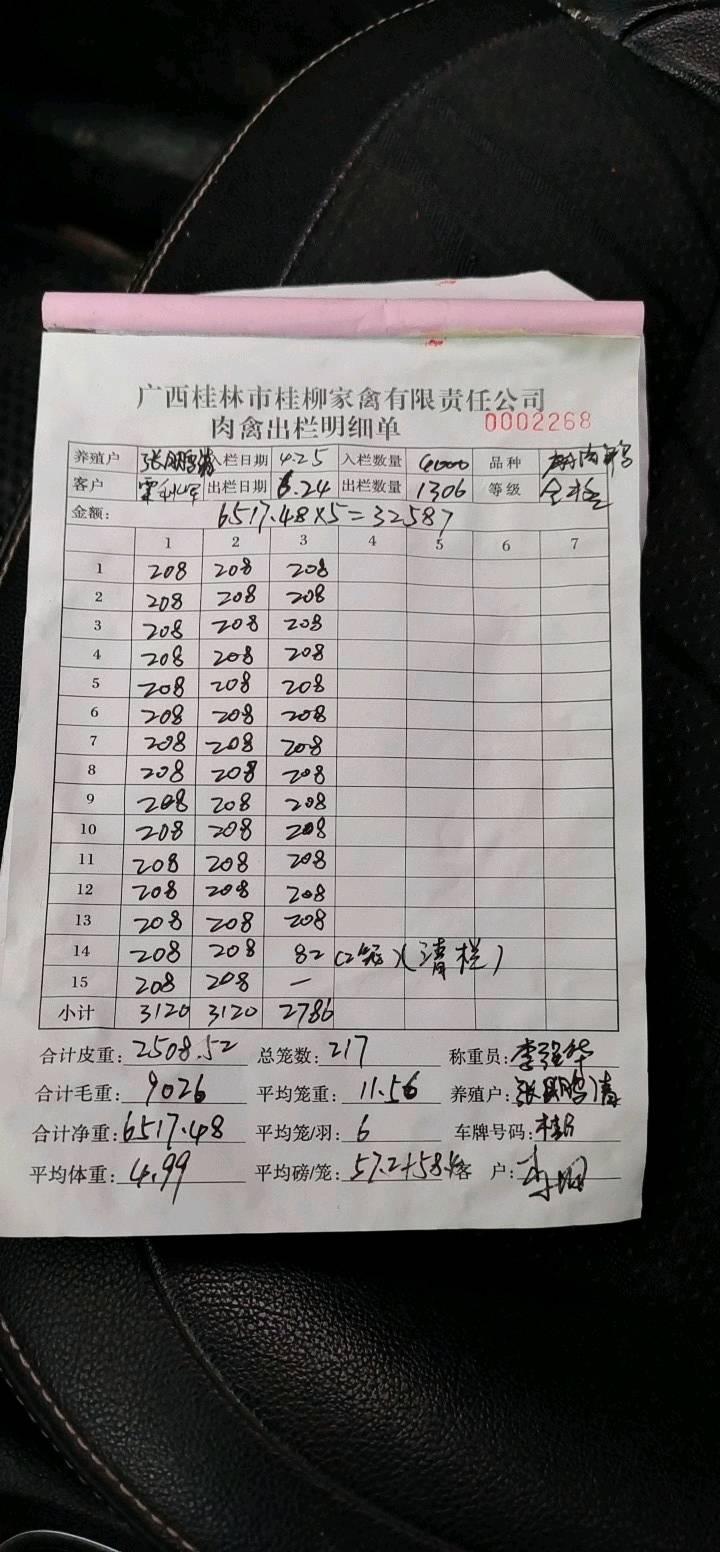 广西桂林市桂柳家禽有限责任公司
肉禽出栏明细单 0002268
养殖户 张 栏日期 4.25 入栏数量 4000 品种
客户 出栏日期 6.24 出栏数量 1306 等级
金额: 6517.48×5=32587
1 2 3 4 5 6 7
1 208 208 208
2 208 208 208
3 208 208 208
4 208 208 208
5 208 208 208
6 208 208 208
7 208 208 208
8 208 208 208
9 208 208 208
10 208 208 208
11 208 208 208
12 208 208 208
13 208 208 208
14 208 208 82 (2笼)(清栏)
15 208 208 —
小计 3120 3120 2786
合计皮重: 2508.52 总笼数: 217 称重员: 李强华
合计毛重: 9026 平均笼重: 11.56 养殖户: 张
合计净重: 6517.48 平均笼/羽: 6 车牌号码: 桂
平均体重: 4.99 平均磅/笼: 57.2+58.4 客 户: